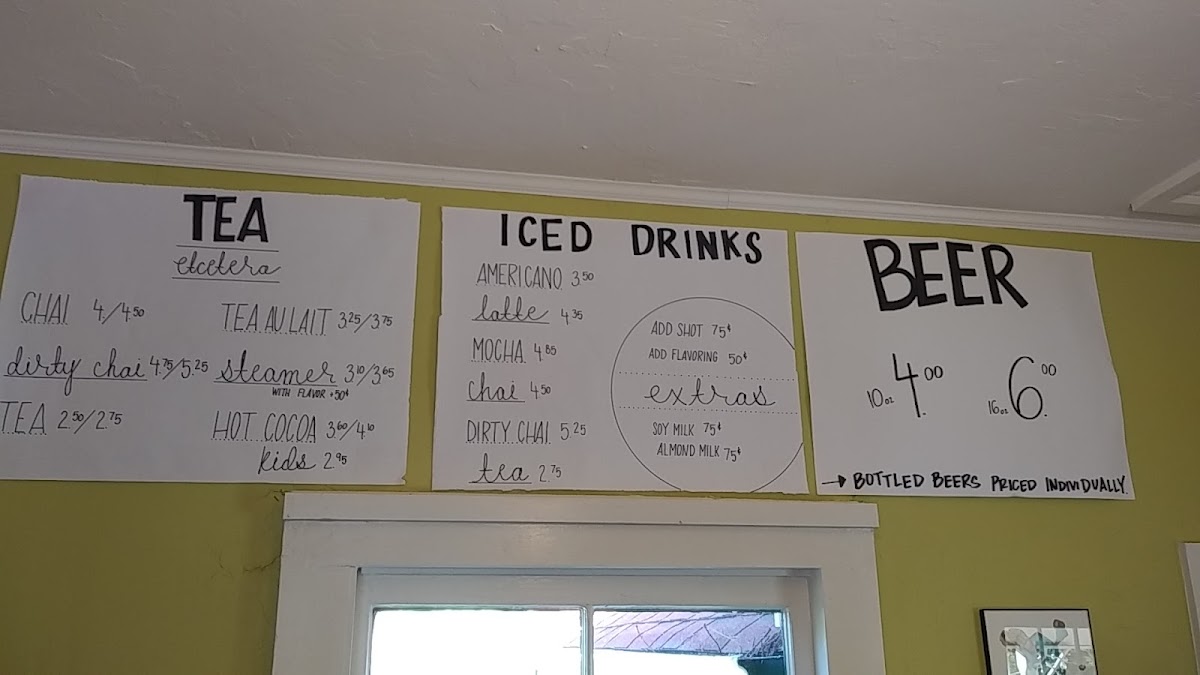 TEA
etcetera
CHAI 4/4.50
dirty chai 4.75/5.25
TEA 2.50/2.75
TEA AU LAIT 3.25/3.75
steamer 3.10/3.65
WITH FLAVOR +50¢
HOT COCOA 3.60/4.10
kids 2.95
ICED DRINKS
AMERICANO 3.50
latte 4.35
MOCHA 4.85
chai 4.50
DIRTY CHAI 5.25
tea 2.75
ADD SHOT 75¢
ADD FLAVORING 50¢
extras
SOY MILK 75¢
ALMOND MILK 75¢
BEER
10oz 4.00
16oz 6.00
→ BOTTLED BEERS PRICED INDIVIDUALLY.